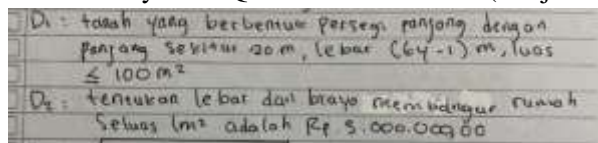 D1 : tanah yang berbentuk persegi panjang dengan
panjang sekitar 20 m, lebar (6y-1) m, luas
≤ 100 m²
D2 : tentukan lebar dan biaya membangun rumah
Seluas 1m² adalah Rp 5.000.000,00